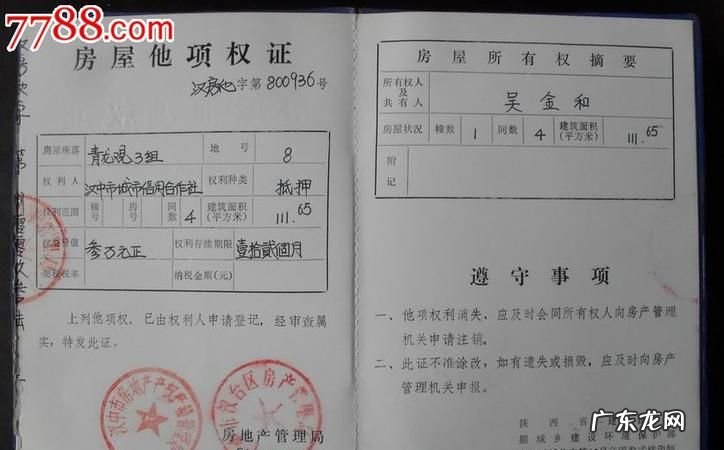 7788.com
房屋他项权证
汉房他字第800936号
房屋座落 青龙观3组 地号 8
权利人 汉中市城市信用合作社 权利种类 抵押
权利范围 幢号 房号 间数 4 建筑面积(平方米) 111.65
权利价值 叁万元正 权利存续期限 壹拾贰個月
契税税率 纳税金额(元)
上列他项权,已由权利人申请登记,经审查属
实,特发此证。
房地产管理局
房屋所有权摘要
所有权人及共有人 吴金和
房屋状况 幢数 1 间数 4 建筑面积(平方米) 111.65
附记
遵守事项
一、他项权利消失,应及时会同所有权人向房产管理
机关申请注销。
二、此证不准涂改,如有遗失或损毁,应及时向房产
管理机关申报。
陕西省
据城乡建设环境保护部
广东龙网